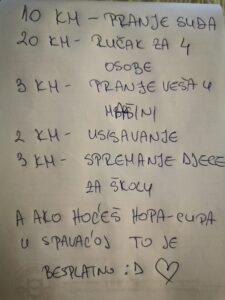 10 KM - PRANJE SUĐA
20 KM - RUČAK ZA 4
OSOBE
3 KM - PRANJE VEŠA U
MAŠINI
2 KM - USISAVANJE
3 KM - SPREMANJE DJECE
ZA ŠKOLU
A AKO HOĆEŠ HOPA-CUPA
U SPAVAĆOJ TO JE
BESPLATNO :D ♡